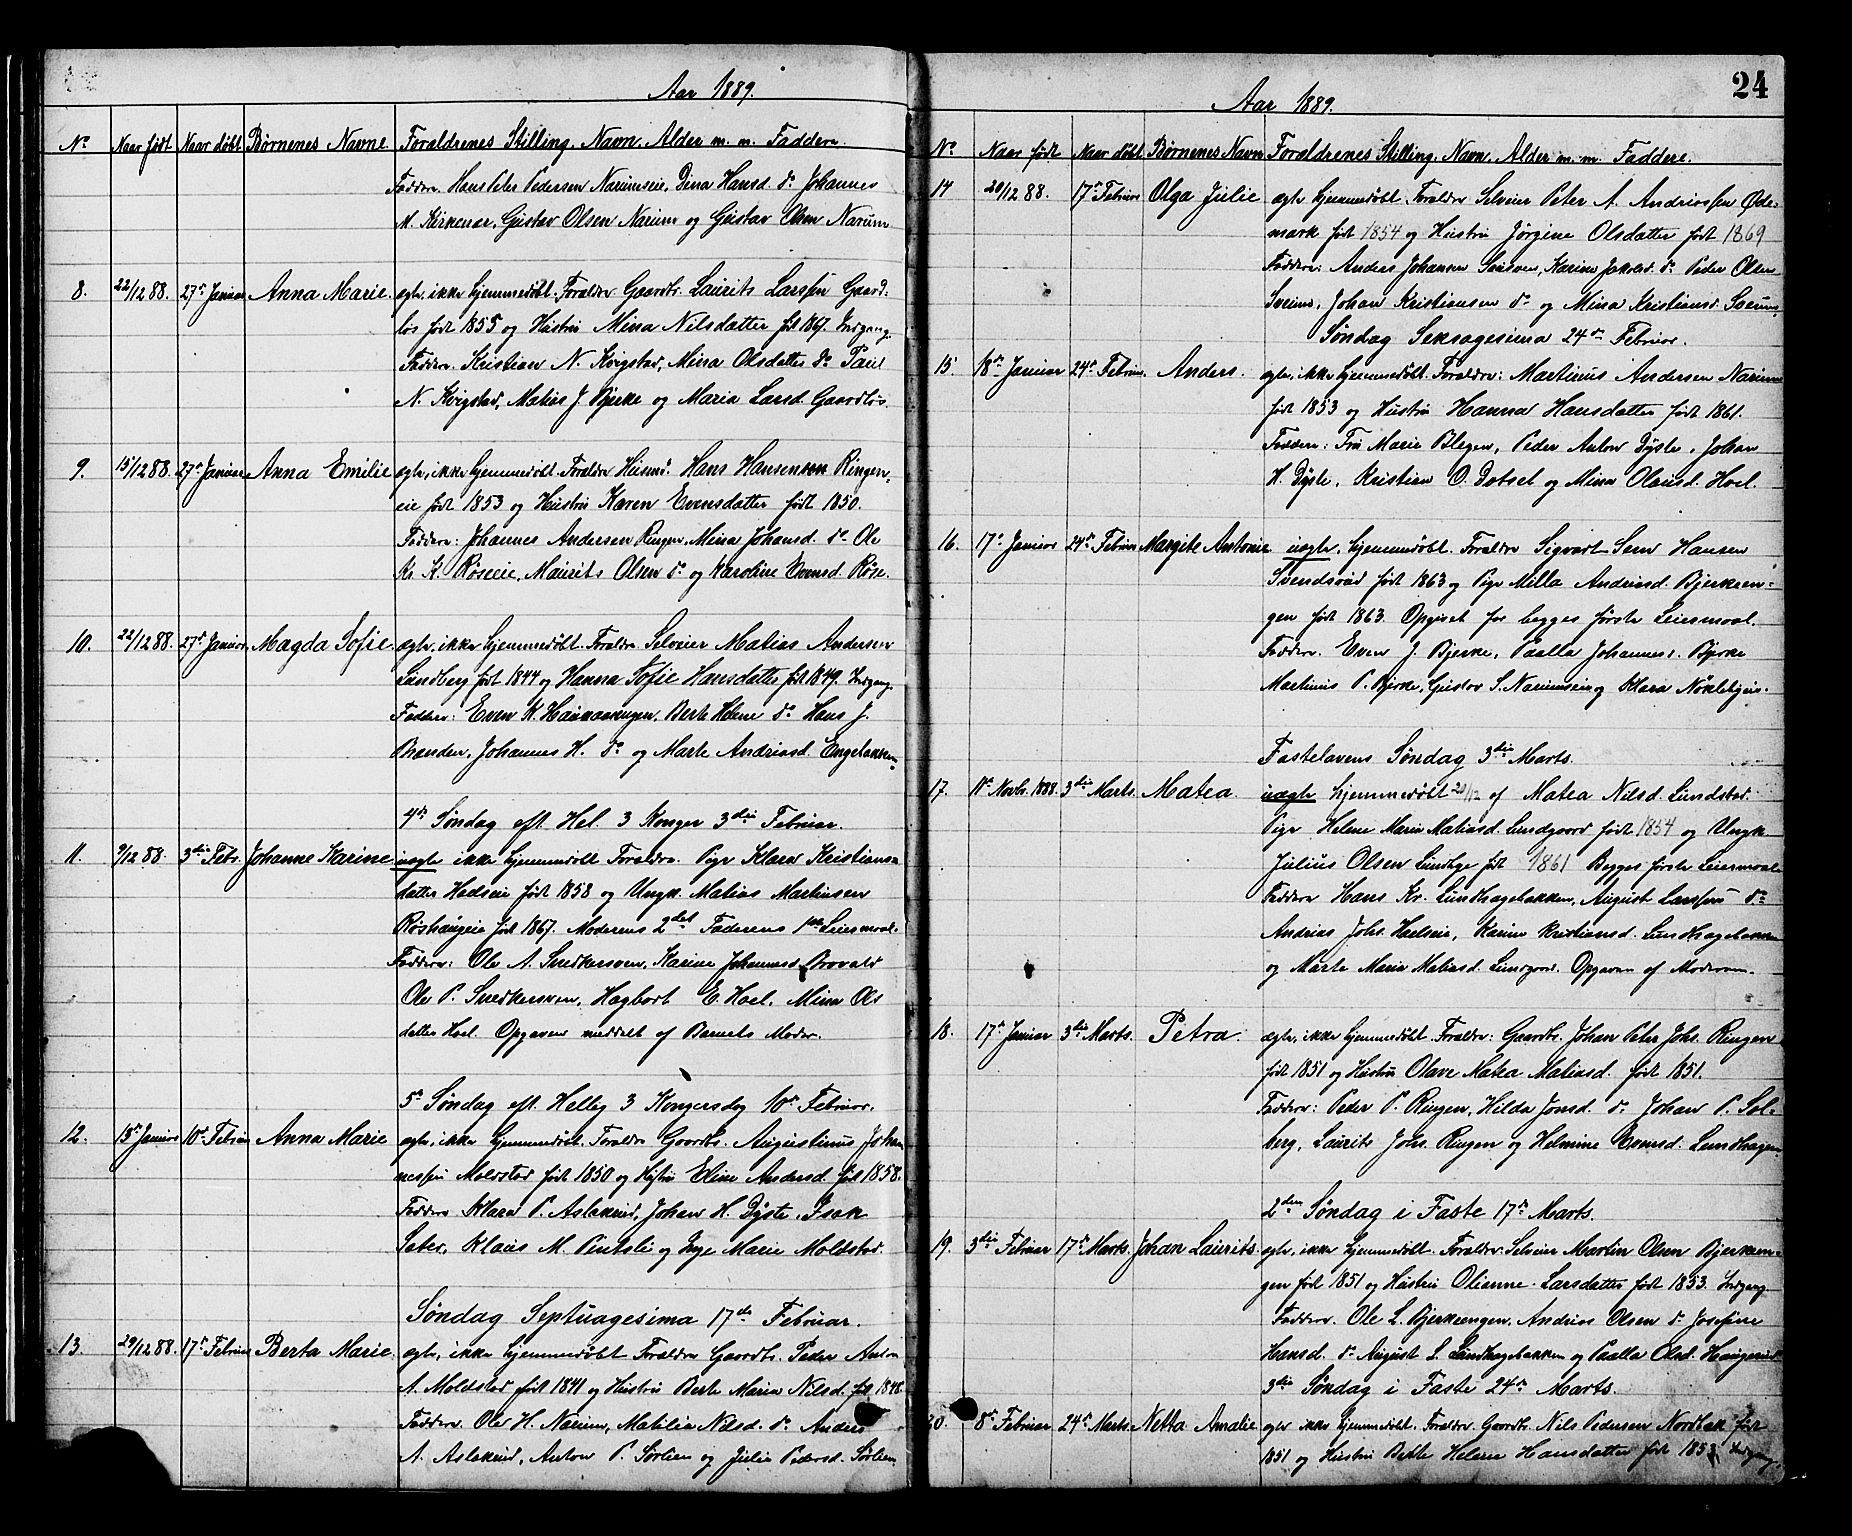 Aar 1889.
No Naar født Naar døbt Børnenes Navne Forældrenes Stilling, Navn, Alder m. m. Faddere.
Faddere Hans Peter Pedersen Narumseie, Dina Hansd. do Johannes
M. Kirkener, Gustav Olsen Narum og Gustav Olsen Narum
8. 22/12 88. 27de Januar Anna Marie. ægte, ikke hjemmedøbt. Forældre Gaardbr. Laurits Larssen Gaard-
løs født 1855 og Hustru Mina Nilsdatter fød 1867. Indgang.
Faddere. Kristian N. Kvigstad, Mina Olsdatter do Paul
N. Kvigstad, Matias J. Bjerke og Maria Larsd. Gaardløs.
9. 15/12 88. 27de Januar Anna Emilie ægte, ikke hjemmedøbt. Forældre Husmd. Hans Hansen Ringen-
eie født 1853 og Hustru Karen Evensdatter født 1850.
Faddere: Johannes Andersen Ringen, Mina Johansd. do Ole
Kr. K. Røseeie, Maurits Olsen do og Karoline Evensd. Røse.
10. 22/12 88. 27de Januar. Magda Sofie. ægte, ikke hjemmedøbt. Forældre Selveier Matias Andersen
Lundberg født 1844 og Hanna Sofie Hansdatter født 1849. Indgang.
Faddere: Even K. Berte Helene do Hans J.
Brænden, Johannes H. do og Marte Andriasd. Engebakken
4de Søndag eft. Hel. 3 Konger 3die Februar.
11. 9/12 88. 3die Febr. Johanne Karine uægte ikke hjemmedøbt Forældre. Pige Klara Kristians-
datter Hadseie født 1858 og Ungk. Matias Martinsen
Røshaugeie født 1867. Moderens 2det Faderens 1ste Leiermaal.
Faddere: Ole A. Snedkersveen, Karine Johannesd. Brovald
Ole P. Snedkersveen, Hagbart E. Hoel, Mina Ols
datter Hoel. Opgaven meddelt af Barnets Moder.
5te Søndag eft. Hellig 3 Kongersdag 10de Februar.
12. 13de Januar 10de Februar Anna Marie ægte, ikke hjemmedøbt. Forældre Gaardbr. Augustinus Johan
nessen Moldstad født 1850 og Hustru Eline Andersd. født 1858.
Faddere Klara P. Aslakrud, Johan H. Dyste, Isak
Sater, Klaus M. Pintsli og Inge Marie Moldstad.
Søndag Septuagesima 17de Februar.
13. 29/12 88. 17de Februar Berta Marie. ægte, ikke hjemmedøbt Forældre Gaardbr. Peder Anton
A. Moldstad født 1841 og Hustru Berte Maria Nilsd. fød 1848
Faddere. Ole H. Narum, Matilia Nilsd. do Anders
A. Aslakrud, Anton P. Sørlien og Julie Pedersd. Sørlien
24
Aar 1889.
No Naar født Naar døbt Børnenes Navn Forældrenes Stilling, Navn, Alder m. m. Faddere.
14 20/12 88. 17de Februar Olga Julie ægte hjemmedøbt. Forældre Selveier Peter A. Andriassen Øde-
mark født 1854 og Hustru Jørgine Olsdatter født 1869
Faddere: Andreas Johansen Karine Jakobsd. do Peder Olsen
Sveums, Johan Kristiansen do og Mina Kristiansd. Sveums
Søndag Seksagesima 24de Februar.
15. 18de Januar 24de Februar. Anders. ægte, ikke hjemmedøbt. Forældre: Martinus Andersen Narum
født 1853 og Hustru Hanna Hansdatter født 1861.
Faddere: Fru Marie Blegen, Peder Anton Dyste, Johan
H. Dyste, Kristian O. Dotset og Mina Olausd. Hoel.
16. 17de Januar 24de Februar Margite Antonie uægte, hjemmedøbt. Forældre Sigvart Sem Hansen
Svendsrud født 1863 og Pige Milla Andriasd. Bjerkeen-
gen født 1863. Opgivet for begges første Leiermaal.
Faddere. Even J. Bjerke, Paalla Johannesd. Bjerke
Martinus P. Bjerke, Gustav S. Narumseie og Klara Nøklebyeie.
Fastelavens Søndag 3die Marts.
17. 11te Novb. 1888. 3die Marts. Matea. uægte hjemmedøbt 20/12 af Matea Nilsd. Lundstad.
Pige Helene Maria Matiasd. Lundgaard født 1854 og Ungk
Julius Olsen Lundbye født 1861 Begges første Leiermaal
Faddere Hans Kr. Lundhagebakken, August Larssen do
Andrias Johs. Hadseie, Karine Kristiansd. Lundhagebakken
og Marte Maria Matiasd. Lundgaard. Opgaven af Moderen.
18. 17de Januar 3die Marts. Petra. ægte, ikke hjemmedøbt. Forældre: Gaardbr. Johan Peter Johs. Ringen
født 1851 og Hustru Olave Matea Matiasd. født 1851.
Faddere: Peder P. Ringen, Hilda Jonsd. do Johan P. Sol-
berg, Laurits Johs. Ringen og Helmine Evensd. Lundhagen
2den Søndag i Faste 17de Marts.
19. 3die Februar 17de Marts. Johan Laurits. ægte, ikke hjemmedøbt. Forældre: Selveier Martin Olsen Bjerkeen-
gen født 1851 og Hustru Olianne Larsdatter født 1853. Indgang.
Faddere. Ole L. Bjerkeengen, Andrias Olsen do Josefine
Hansd. do August L. Lundhagebakken og Paalla Olsd. Haugerud
3die Søndag i Faste 24de Marts.
20. 8de Februar 24de Marts. Netta Amalie ægte ikke hjemmedøbt. Forældre Gaardbr. Nils Pedersen Nordbak født
1851 og Hustru Berthe Helene Hansdatter født 1853. Indgang.